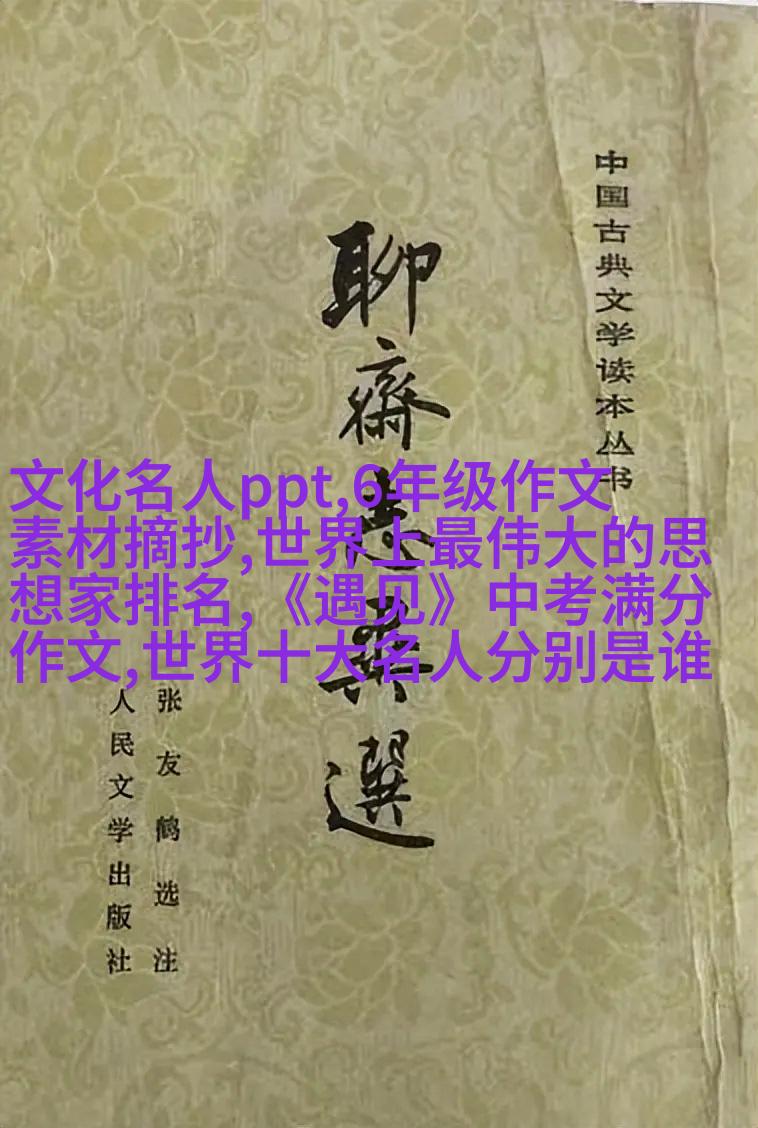 中国古典文学读本丛书
聊齋志異選
张友鹤选注
人民文学出版社
文化名人ppt,6年级作文
素材摘抄,世界上最伟大的思
想家排名,《遇见》中考满分
作文,世界十大名人分别是谁